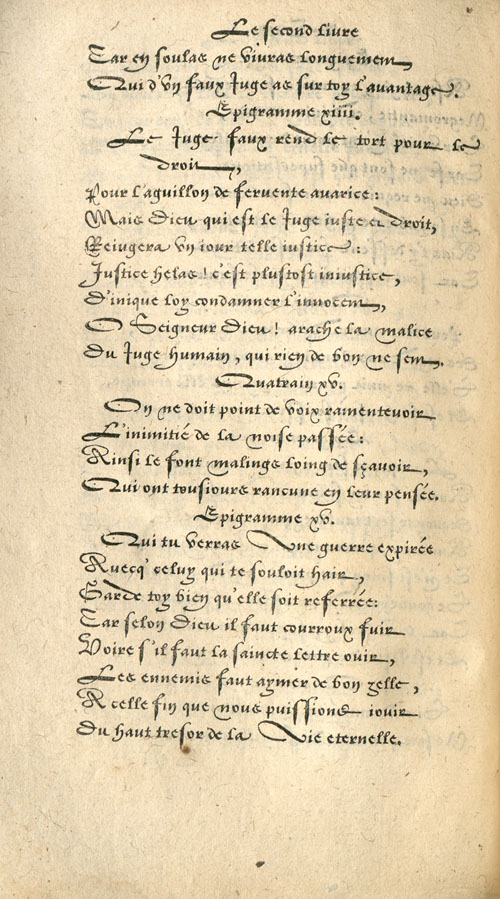 Le second livre
Car en soulas ne vivras longuement,
Qui d'vn faux Iuge as sur toy l'auantage.
Epigramme xiiii.
Le Iuge faux rend le tort pour le
droit,
Pour l'aguillon de fervente auarice:
Mais Dieu qui est le Iuge iuste et droit,
Reiugera vn iour telle iustice:
Iustice helas! c'est plustost iniustice,
D'inique loy condamner l'innocent,
O Seigneur Dieu! arache la malice
Du Iuge humain, qui rien de bon ne sent.
Quatrain xv.
On ne doit point de voix ramentevoir
L'inimitié de la noise passée:
Ainsi le font malings loing de sçavoir,
Qui ont tousiours rancune en leur pensée.
Epigramme xv.
Qui tu verras Vne guerre expirée
Auecq' celuy qui te souloit hair,
Garde toy bien qu'elle soit referrée:
Car selon Dieu il faut courroux fuir
Voire s'il faut la saincte lettre ouir,
Les ennemis faut aymer de bon zelle,
A celle fin que nous puissions iouir
Du haut tresor de la Vie eternelle.